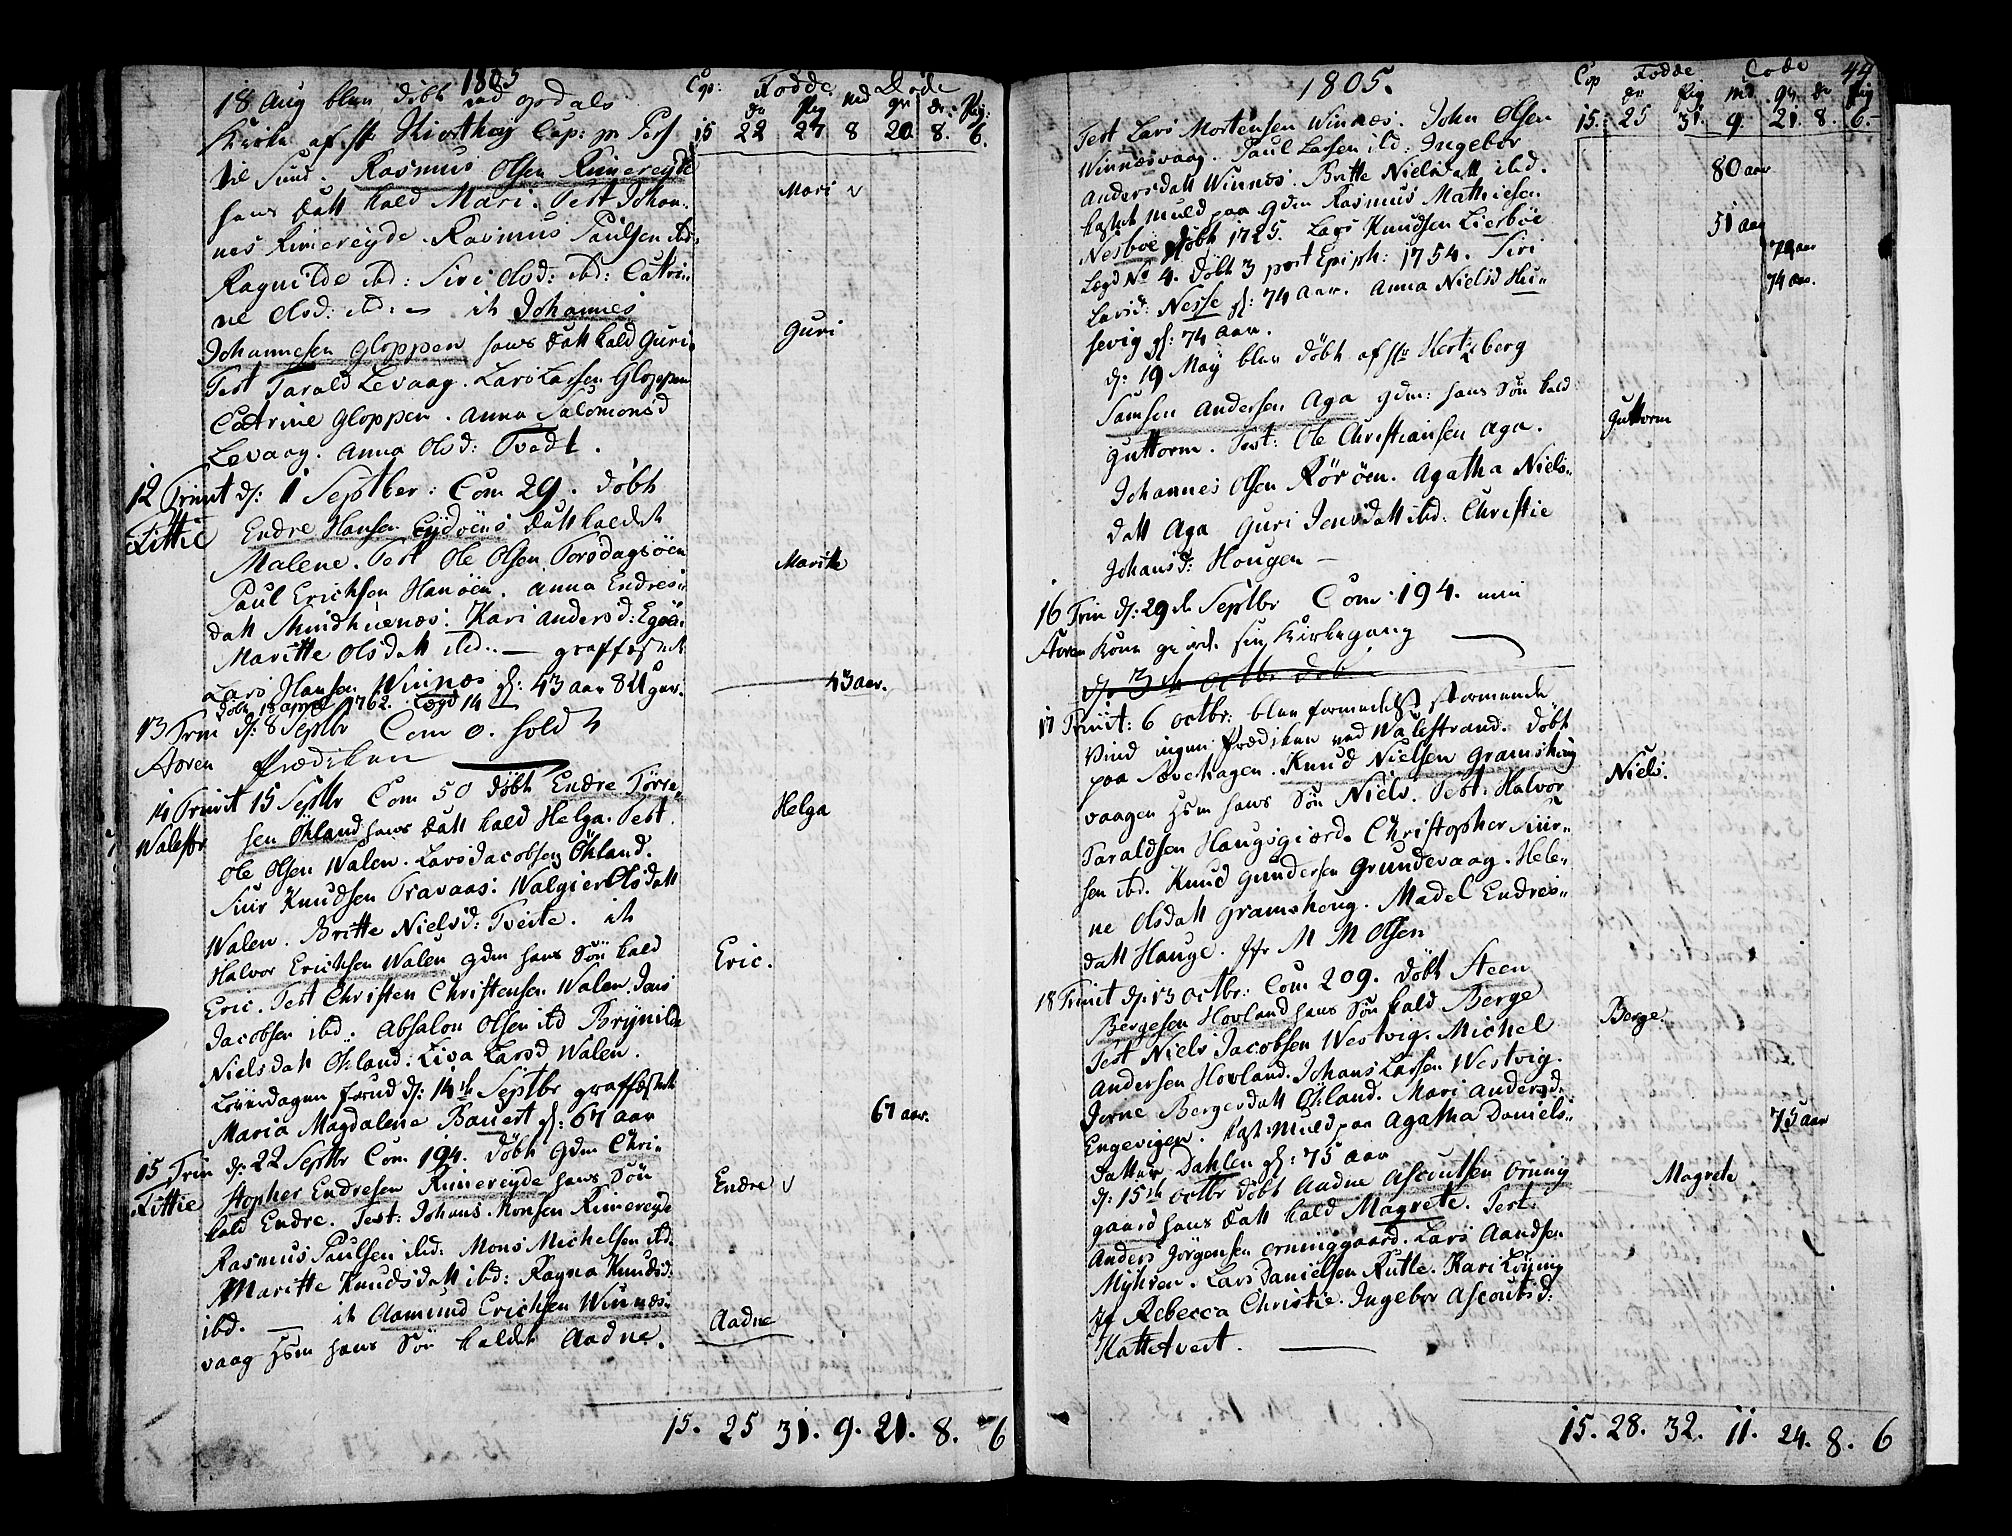 1805
18 Aug blev døbt ved Opdals
Kirke af Hr Hiorthøy Cap: p. Pers
til Sund. Rasmus Olsen Rimereyde
hans Datt kald Mari. Test Johan-
nes Rimereyde. Rasmus Paulsen ibd:
Ragnilde ibd: Siri Olsd: ibd: Catri-
ne Olsd: ibd: — it Johannes
Johannesen Gloppen hans Datt kald Guri.
Test Tarald Levaag. Lars Larsen Gloppen
Catrine Gloppen. Anna Salomonsd
Levaag. Anna Olsd: Tvedt.
12 Trinit d: 1 Septber: Com 29. Døbt
Fittie Endre Hansen Eydøens Datt kaldet
Malene. Test Ole Olsen Torsdagsøen
Paul Erichsen Hanøen. Anna Endres-
datt Skindhuenæs. Kari Andersd: Egøen
Maritte Olsdatt ibd. — graffæstet
Lars Hansen Winnæs gl: 43 aar 8 Uger.
Døbt 18 april 1762. Lægd 14
13 Trin d: 8 Septbr Com 0. holdt
Aoren Prædiken
14 Trinit 15 Septbr Com 50 døbt Endre Tørre-
Walestr sen Økland hans Datt kald Helga. Test.
Ole Olsen Walen. Lars Jacobsen Økland.
Siur Knudsen Travaas: Walgier Olsdatt
Walen. Britte Nielsd: Tveite. it
Halvor Erichsen Walen Gdm hans Søn kald
Eric. Test Christen Christensen Walen. Jens
Jacobsen ibd. Absalon Olsen ibd Brynilde
Nielsdatt Økland: Lisa Larsd Walen.
Løverdagen forud d: 14de Septbr graffæstet
Maria Magdalene Bauert gl: 67 aar
15 Trin d: 22 Septbr Com 194. døbt Gdm Chri-
Fittie stopher Endresen Rimereyde hans Søn
kald Endre. Test: Johans Monsen Rimereyde
Rasmus Paulsen ibd: Mons Michelsen ibd.
Maritte Knudsdatt ibd: Ragna Knudsd:
ibd. — it Aamund Erichsen Winnæs-
vaag Hsm hans Søn kaldet Aadne.
Cop: Fødde Døde
Dr Pig Md Qv Dr: Pig:
15 22 27 8 20 8. 6.
Mari v
Guri
Maritte
43 aar.
Helga
Eric.
67 aar.
Endre v
Aadne
15. 25 31. 9. 21. 8. 6
1805.
44
Test Lars Mortensen Winnæs. John Olsen
Winnæsvaag. Paul Larsen ibd: Ingebor
Andersdatt Winnæs. Britte Nielsdatt ibd.
kastet Muld paa Gdm Rasmus Mathiesen
Nesbøe døbt 1725. Lars Knudsen Lierbøe
Lægd No 4. døbt 3 post Epiph: 1754. Siri
Larsd: Nesse gl: 74 Aar. Anna Nielsd Hu-
sevig gl: 74 Aar.
d: 19 May blev døbt af Hr Hertzberg
Samsen Andersen Aga Gdm: hans Søn kald
Guttorm. Test: Ole Christiansen Aga.
Johannes Olsen Rörøen. Agatha Niels-
datt Aga Guri Jensdatt ibd: Christie
Johansd: Hougen —
16 Trin d: 29de Septbr Com 194. min
Aoren Kone giorde sin Kirkegang
d: 3de Octbr døb
17 Trinit: 6 Octbr: blev formedelst stormende
Vind ingen Prædiken ved Walestrand. døbt
paa Sævehagen. Knud Nielsen Gramshoug
vaagen Hsm hans Søn Niels. Test: Halvor
Taraldsen Haugsgiærd. Christopher Siur-
sen ibd. Knud Gundersen Grundevaag. Hele-
ne Olsdatt Gramshoug. Madel Endres-
datt Hauge. Jfr M M Olsen
18 Trinit d: 13 Octbr: Com 209. Døbt Steen
Bergesen Hovland hans Søn kald Berge
Test Niels Jacobsen Westvig. Michel
Andersen Hovland. Johans Larsen Westvig.
Jorne Bergesdatt Økland. Mari Andersd:
Engevigen. kast: Muld paa Agatha Daniels-
datter Dahlen gl: 75 Aar
d: 15de Octbr døbt Aadne Ascoutsen Orning
gaard hans Datt kald Magrete. Test:
Anders Jörgensen Orninggaard. Lars Aandsen
Myhren. Lars Danielsen Rutle. Kari Löning
Jf Rebecca Christie. Ingebor Ascoutsd:
Kattetveit.
Cop Fødde Døde
Dr Pig Md Qv Dr Pig
15. 25 31. 9. 21. 8. 6.
80 aar
51 aar
74 aar
74 aar.
Guttorm
Niels.
Berge.
75 aar
Magrete
15. 28. 32. 11. 24. 8. 6